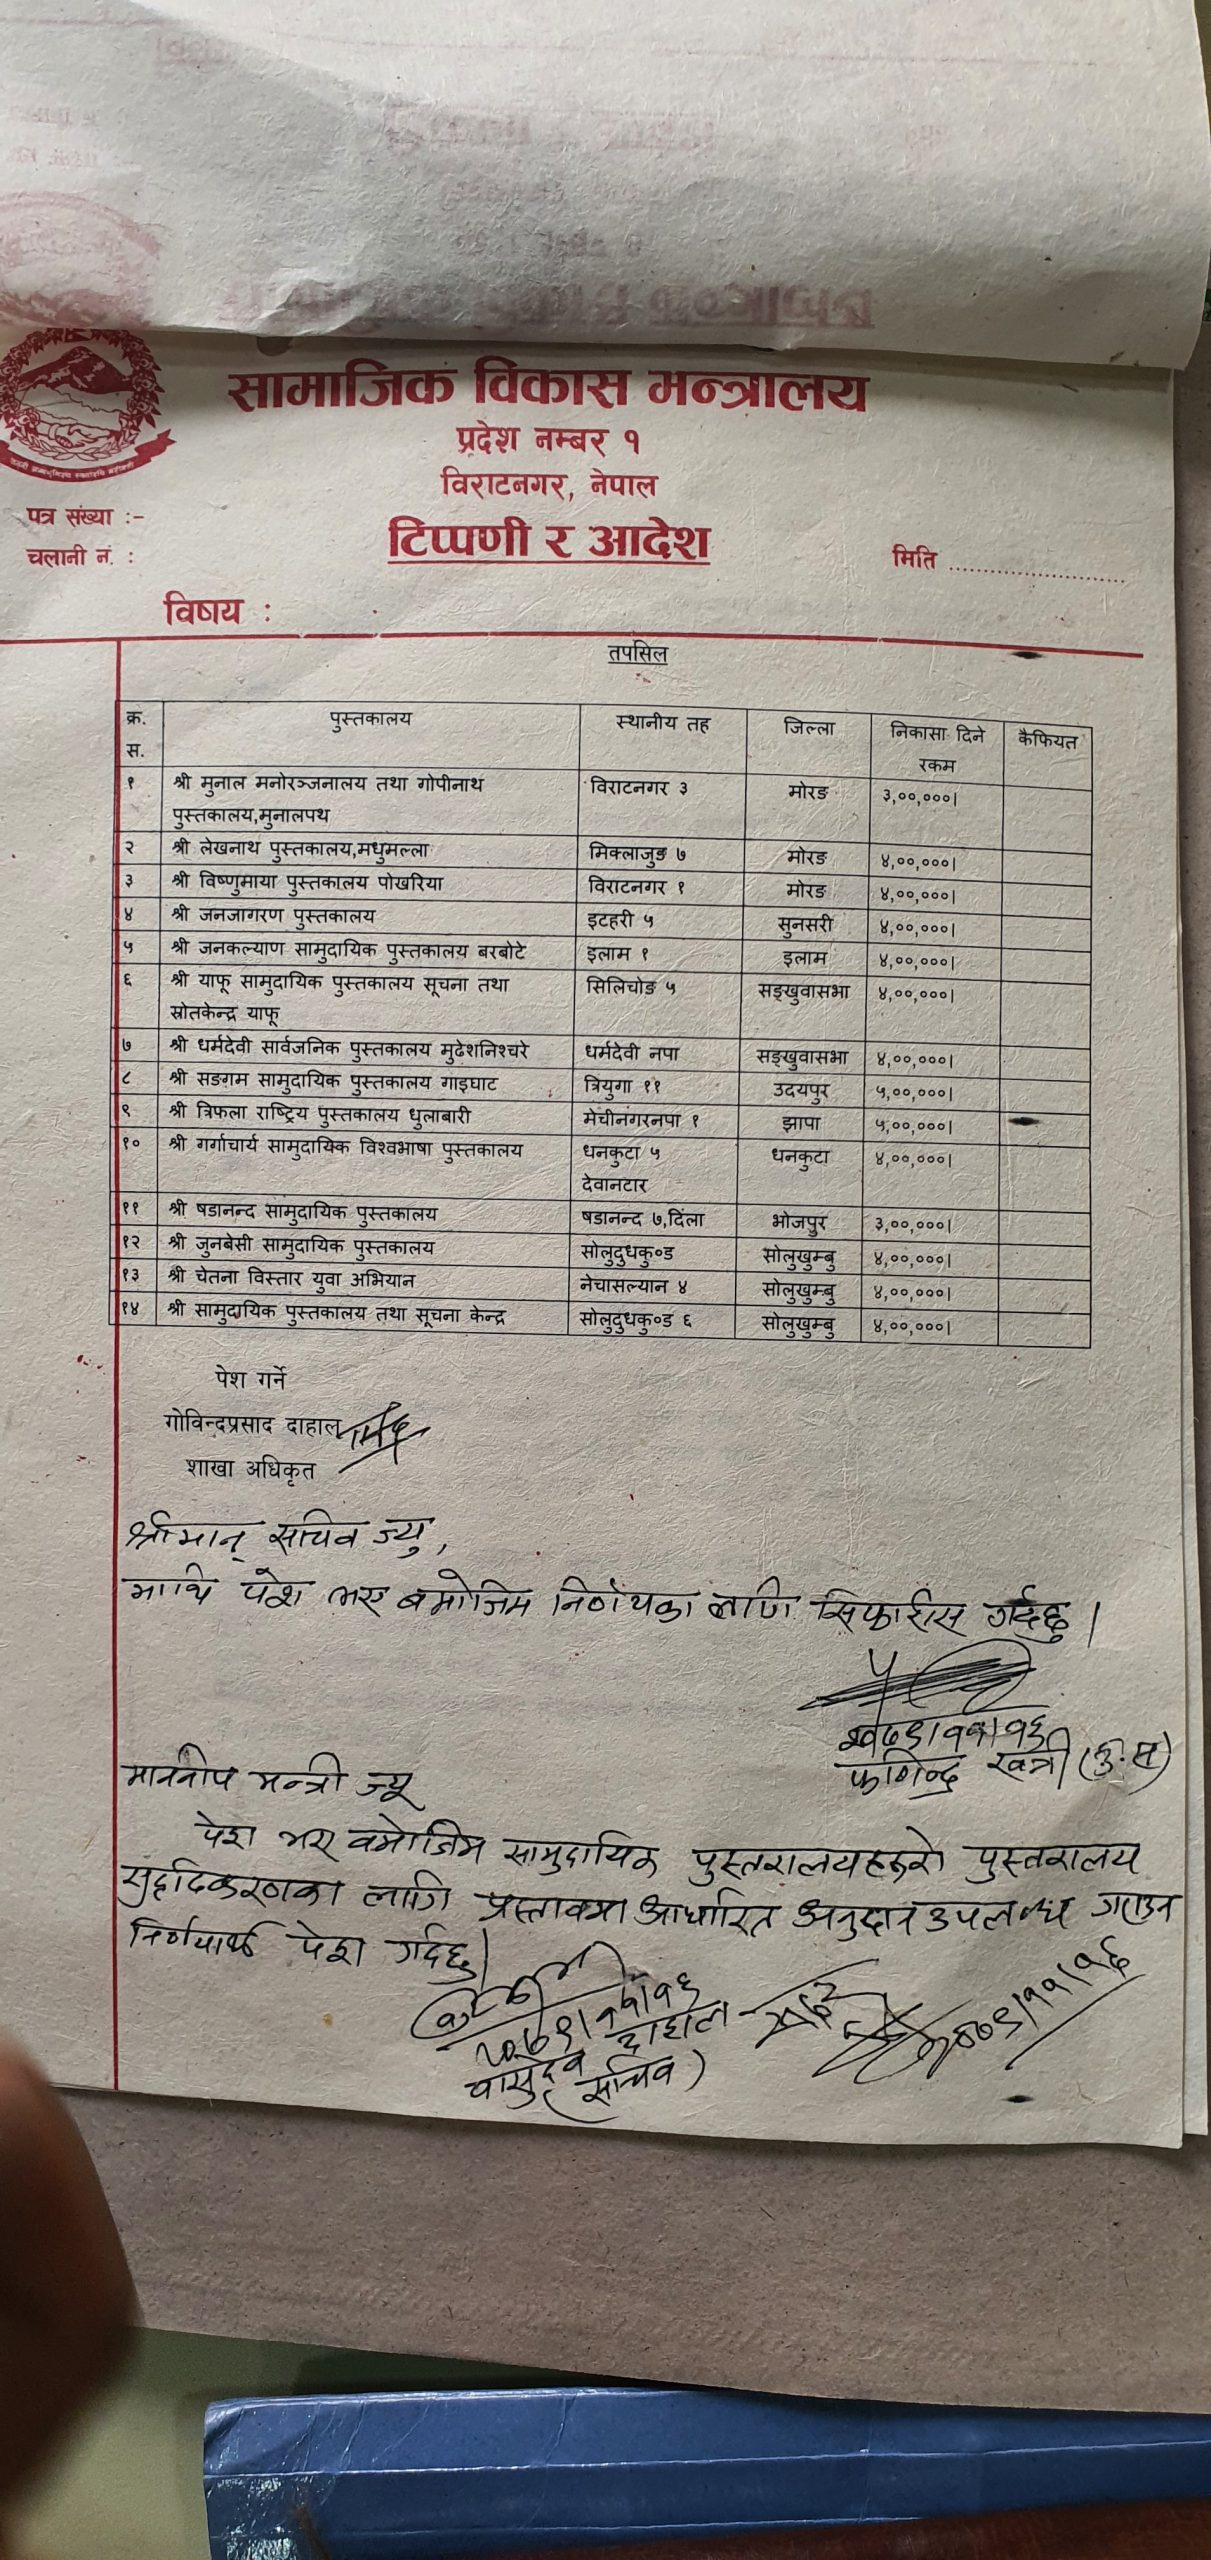 सामाजिक विकास मन्त्रालय
प्रदेश नम्बर १
विराटनगर, नेपाल
पत्र संख्या :-
टिप्पणी र आदेश
चलानी नं. :
मिति ............................
विषय :
तपसिल
क्र. स. पुस्तकालय स्थानीय तह जिल्ला निकासा दिने रकम कैफियत
१ श्री मुनाल मनोरञ्जनालय तथा गोपीनाथ विराटनगर ३ मोरङ ३,००,०००|
पुस्तकालय,मुनालपथ
२ श्री लेखनाथ पुस्तकालय,मधुमल्ला मिक्लाजुङ ७ मोरङ ४,००,०००|
३ श्री विष्णुमाया पुस्तकालय पोखरिया विराटनगर १ मोरङ ४,००,०००|
४ श्री जनजागरण पुस्तकालय इटहरी ५ सुनसरी ४,००,०००|
५ श्री जनकल्याण सामुदायिक पुस्तकालय बरबोटे इलाम १ इलाम ४,००,०००|
६ श्री याफू सामुदायिक पुस्तकालय सूचना तथा सिलिचोङ ५ सङ्खुवासभा ४,००,०००|
स्रोतकेन्द्र याफू
७ श्री धर्मदेवी सार्वजनिक पुस्तकालय मुढेशनिश्चरे धर्मदेवी नपा सङ्खुवासभा ४,००,०००|
८ श्री सङगम सामुदायिक पुस्तकालय गाइघाट त्रियुगा ११ उदयपुर ५,००,०००|
९ श्री त्रिफला राष्ट्रिय पुस्तकालय धुलाबारी मेचीनगरनपा १ झापा ५,००,०००|
१० श्री गर्गाचार्य सामुदायिक विश्वभाषा पुस्तकालय धनकुटा ५ धनकुटा ४,००,०००|
देवानटार
११ श्री षडानन्द सामुदायिक पुस्तकालय षडानन्द ७,दिंला भोजपुर ३,००,०००|
१२ श्री जुनबेसी सामुदायिक पुस्तकालय सोलुदुधकु०ड सोलुखुम्बु ४,००,०००|
१३ श्री चेतना विस्तार युवा अभियान नेचासल्यान ४ सोलुखुम्बु ४,००,०००|
१४ श्री सामुदायिक पुस्तकालय तथा सूचना केन्द्र सोलुदुधकु०ड ६ सोलुखुम्बु ४,००,०००|
पेश गर्ने
गोविन्दप्रसाद दाहाल
शाखा अधिकृत
श्रीमान् सचिव ज्यु,
माथि पेश भए बमोजिम निर्णयका लागि सिफारीस गर्दछु।
२०७९।११।१६
फणिन्द्र खत्री (उ.स)
माननीय मन्त्री ज्यू
पेश भए बमोजिम सामुदायिक पुस्तकालयहरुको पुस्तकालय
सुदृढिकरणका लागि प्रस्तावमा आधारित अनुदान उपलब्ध गराउन
निर्णयार्थ पेश गर्दछु।
२०७९।११।१६
वासुदेव दाहाल
(सचिव)
२०७९।११।१६